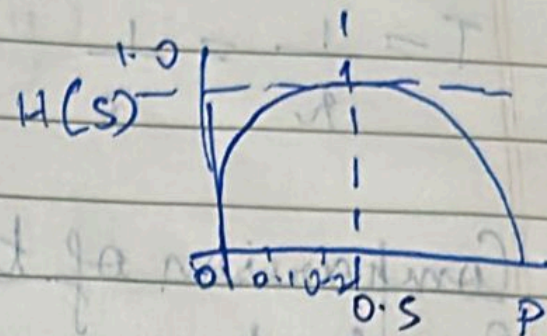 1.0
H(S)
0 0.1 0.2
0.5 P